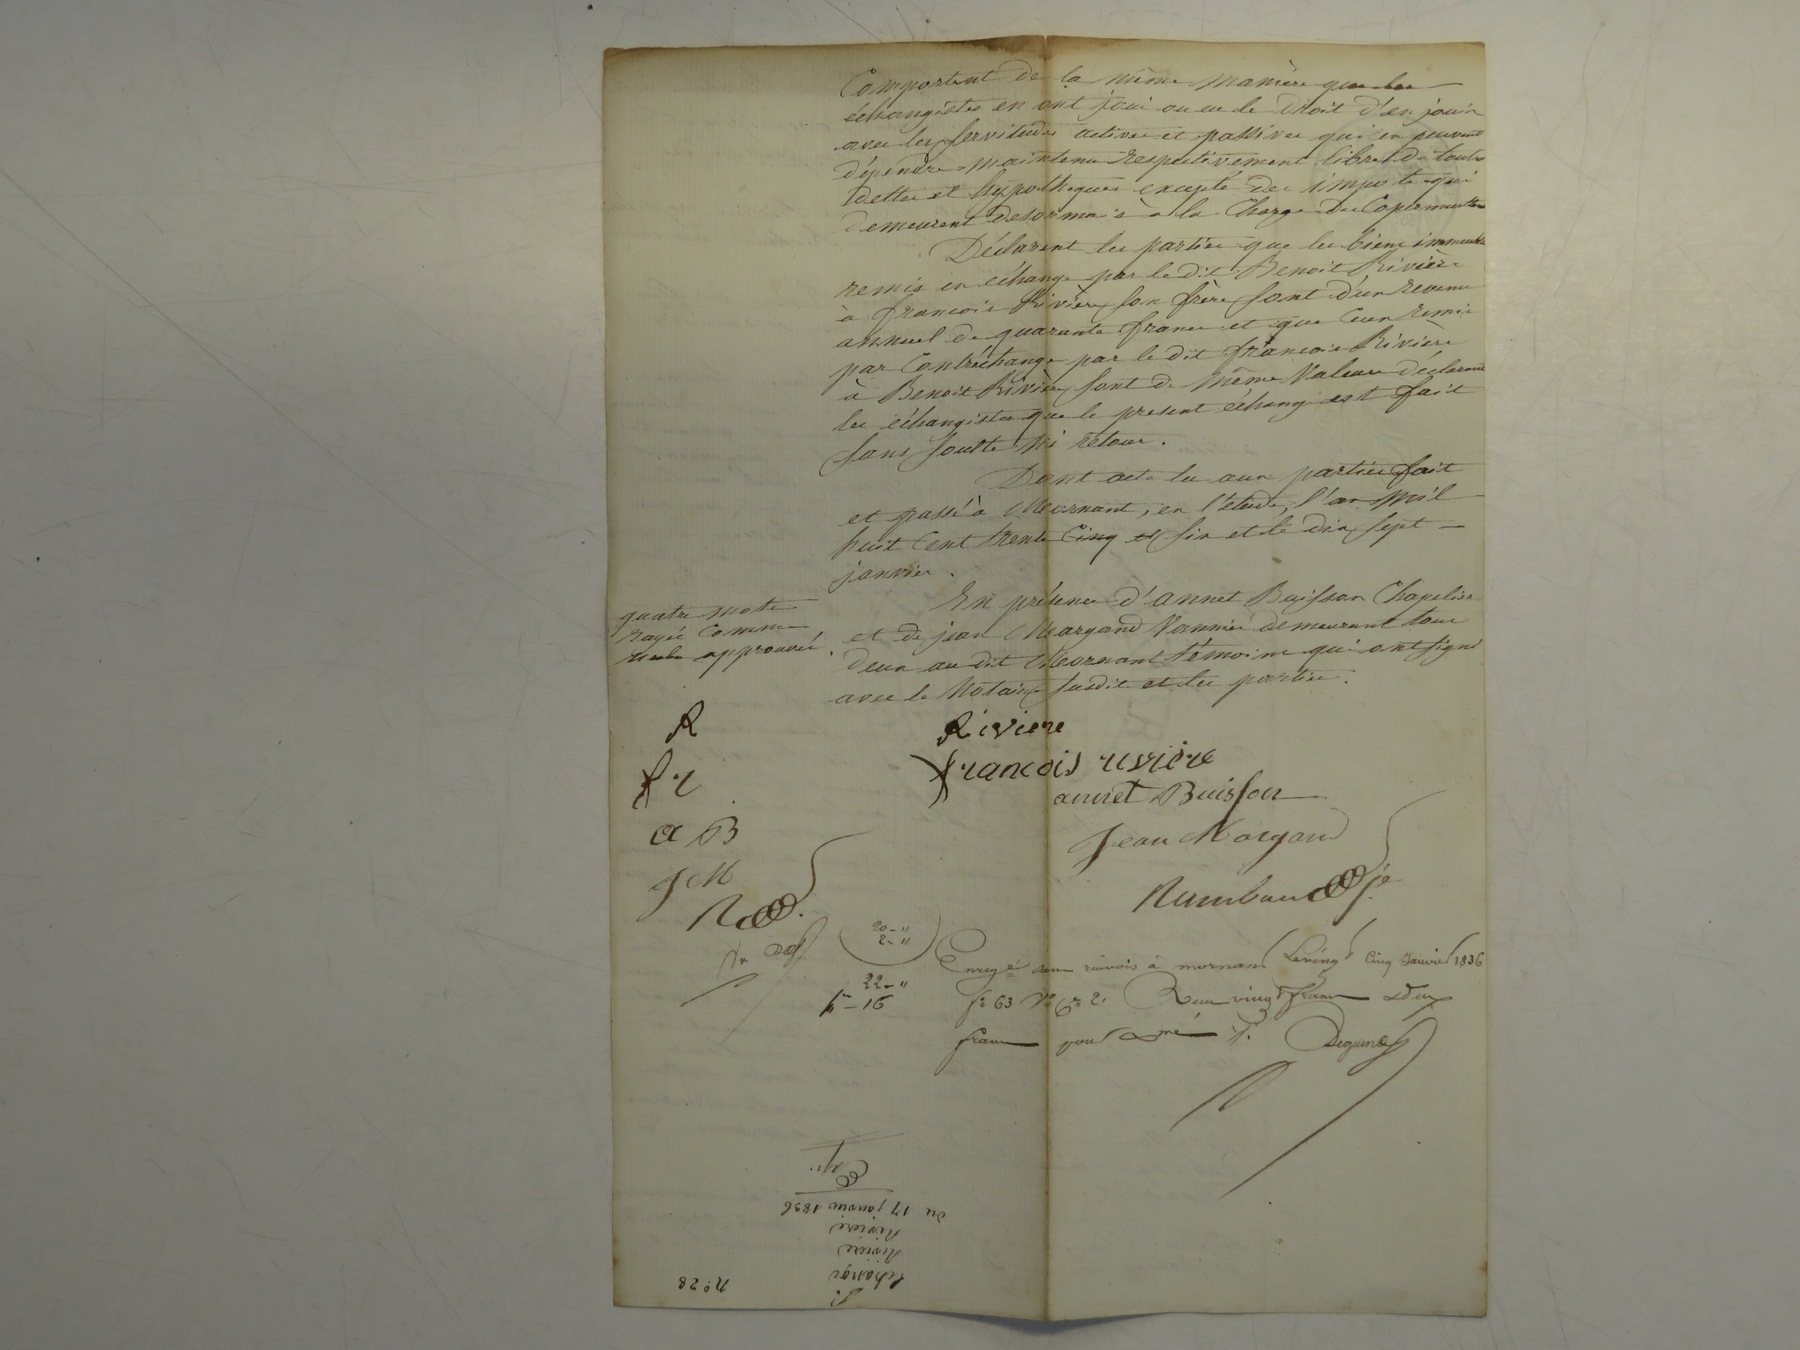 Comportent de la même manière que les
échangistes en ont joui ou eu le droit d'en jouir
avec les servitudes actives et passives qui en peuvent
dépendre maintenu respectivement libres de toutes
dettes et hypothèques excepté des impots qui
demeurent desormais à la Charge des Copermuttans
Déclarent les parties que les biens immeubles
remis en échange par le dit Benoit Rivière
à françois Rivière son frère sont d'un revenu
annuel de quarante francs et que ceux remis
par Contréchange par le dit françois Rivière
à Benoit Rivière sont de même Valeur déclarant
les échangistes que le present échange est fait
sans soulte ni retour.
Dont acte lu aux parties fait
et passé à Mornant, en l'étude, l'an Mil
huit Cent trente Cinq et six et le dix sept
janvier.
En présence d'annet Buisson Chapelier
et de jean Margand Vannier demeurant tous
deux au dit Mornant témoins qui ont signé
avec le Notaire susdit et les parties.
quatre mots
rayés comme
nuls approuvés.
R
fr
a B
J M
R
Riviere
françois rivière
annet Buisson
Jean Morgand
Rambaud je
20-"
2-"
22-"
-16
Enregé sans renvois à mornant Le vingt Cinq Janvier 1836
fo 63 Vo Cn 2. Reçu vingt francs deux
francs pour
No 28
Echange
Rivière
Rivière
du 17 janvier 1836